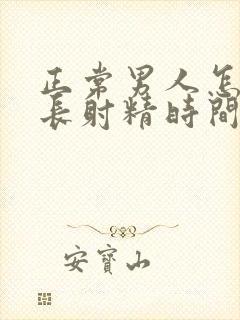 正常男人怎
長射精時間
安寶山